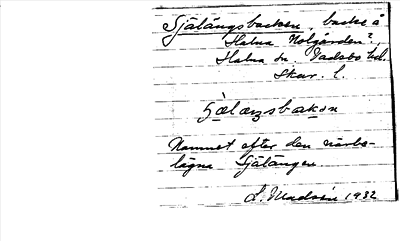 Själängsbacken, backe å
Halna Nolgården?,
Halna sn. Vadsbo hd.
Skar. l.
Själangsbakən
Namnet efter den närbe-
lägna Själängen.
L. Madsén 1932